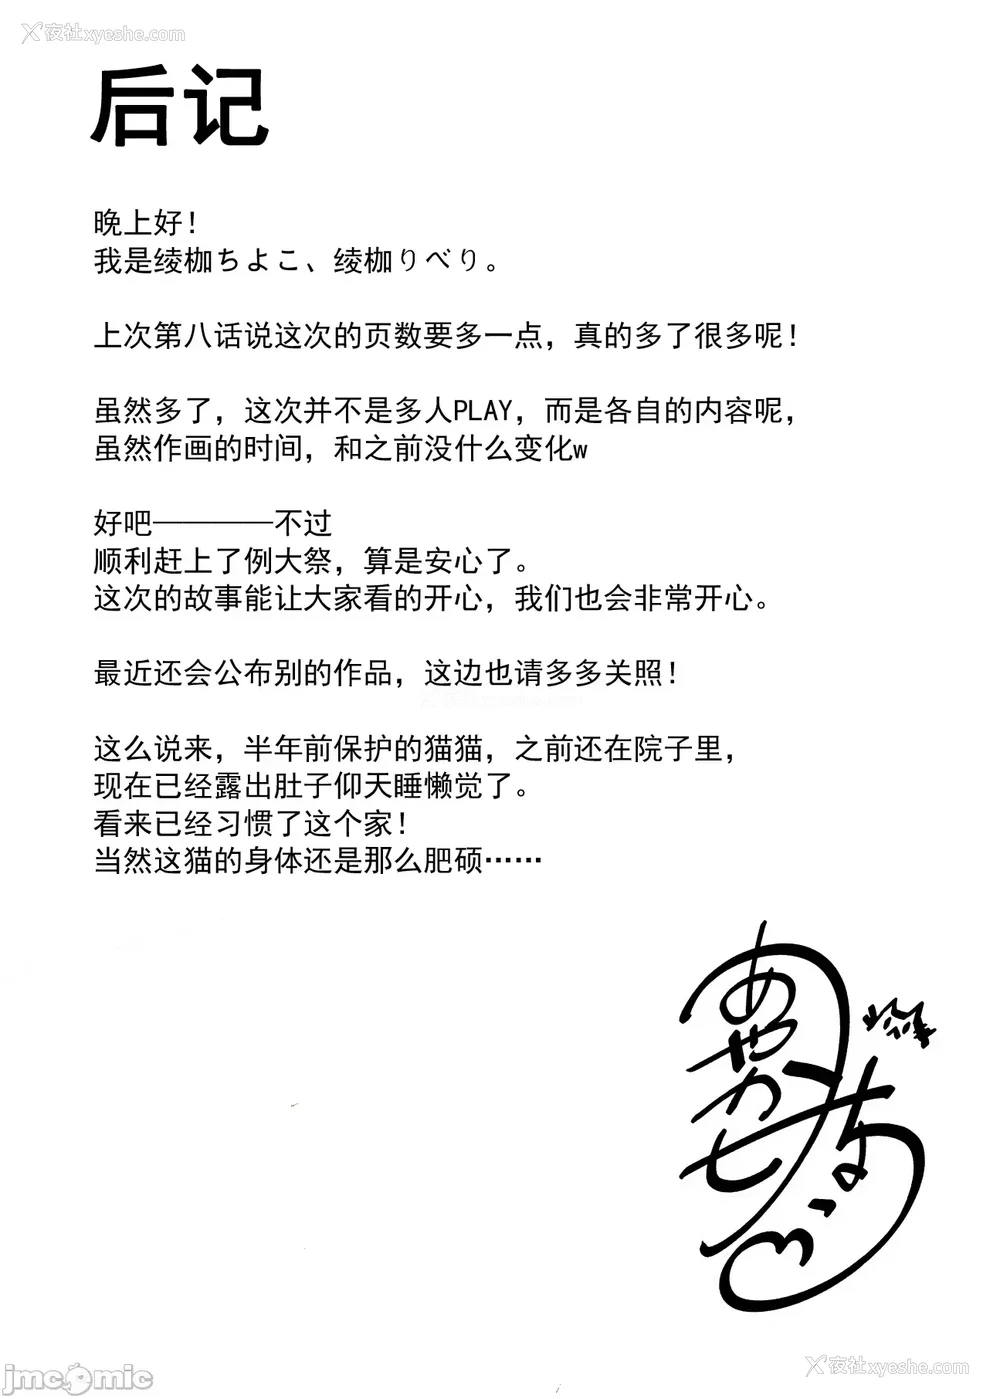 夜社xyeshe.com
后记
晚上好！
我是绫枷ちよこ、绫枷りべり。
上次第八话说这次的页数要多一点，真的多了很多呢！
虽然多了，这次并不是多人PLAY，而是各自的内容呢，
虽然作画的时间，和之前没什么变化w
好吧————不过
顺利赶上了例大祭，算是安心了。
这次的故事能让大家看的开心，我们也会非常开心。
最近还会公布别的作品，这边也请多多关照！
这么说来，半年前保护的猫猫，之前还在院子里，
现在已经露出肚子仰天睡懒觉了。
看来已经习惯了这个家！
当然这猫的身体还是那么肥硕……
夜社xyeshe.com
jmcomic